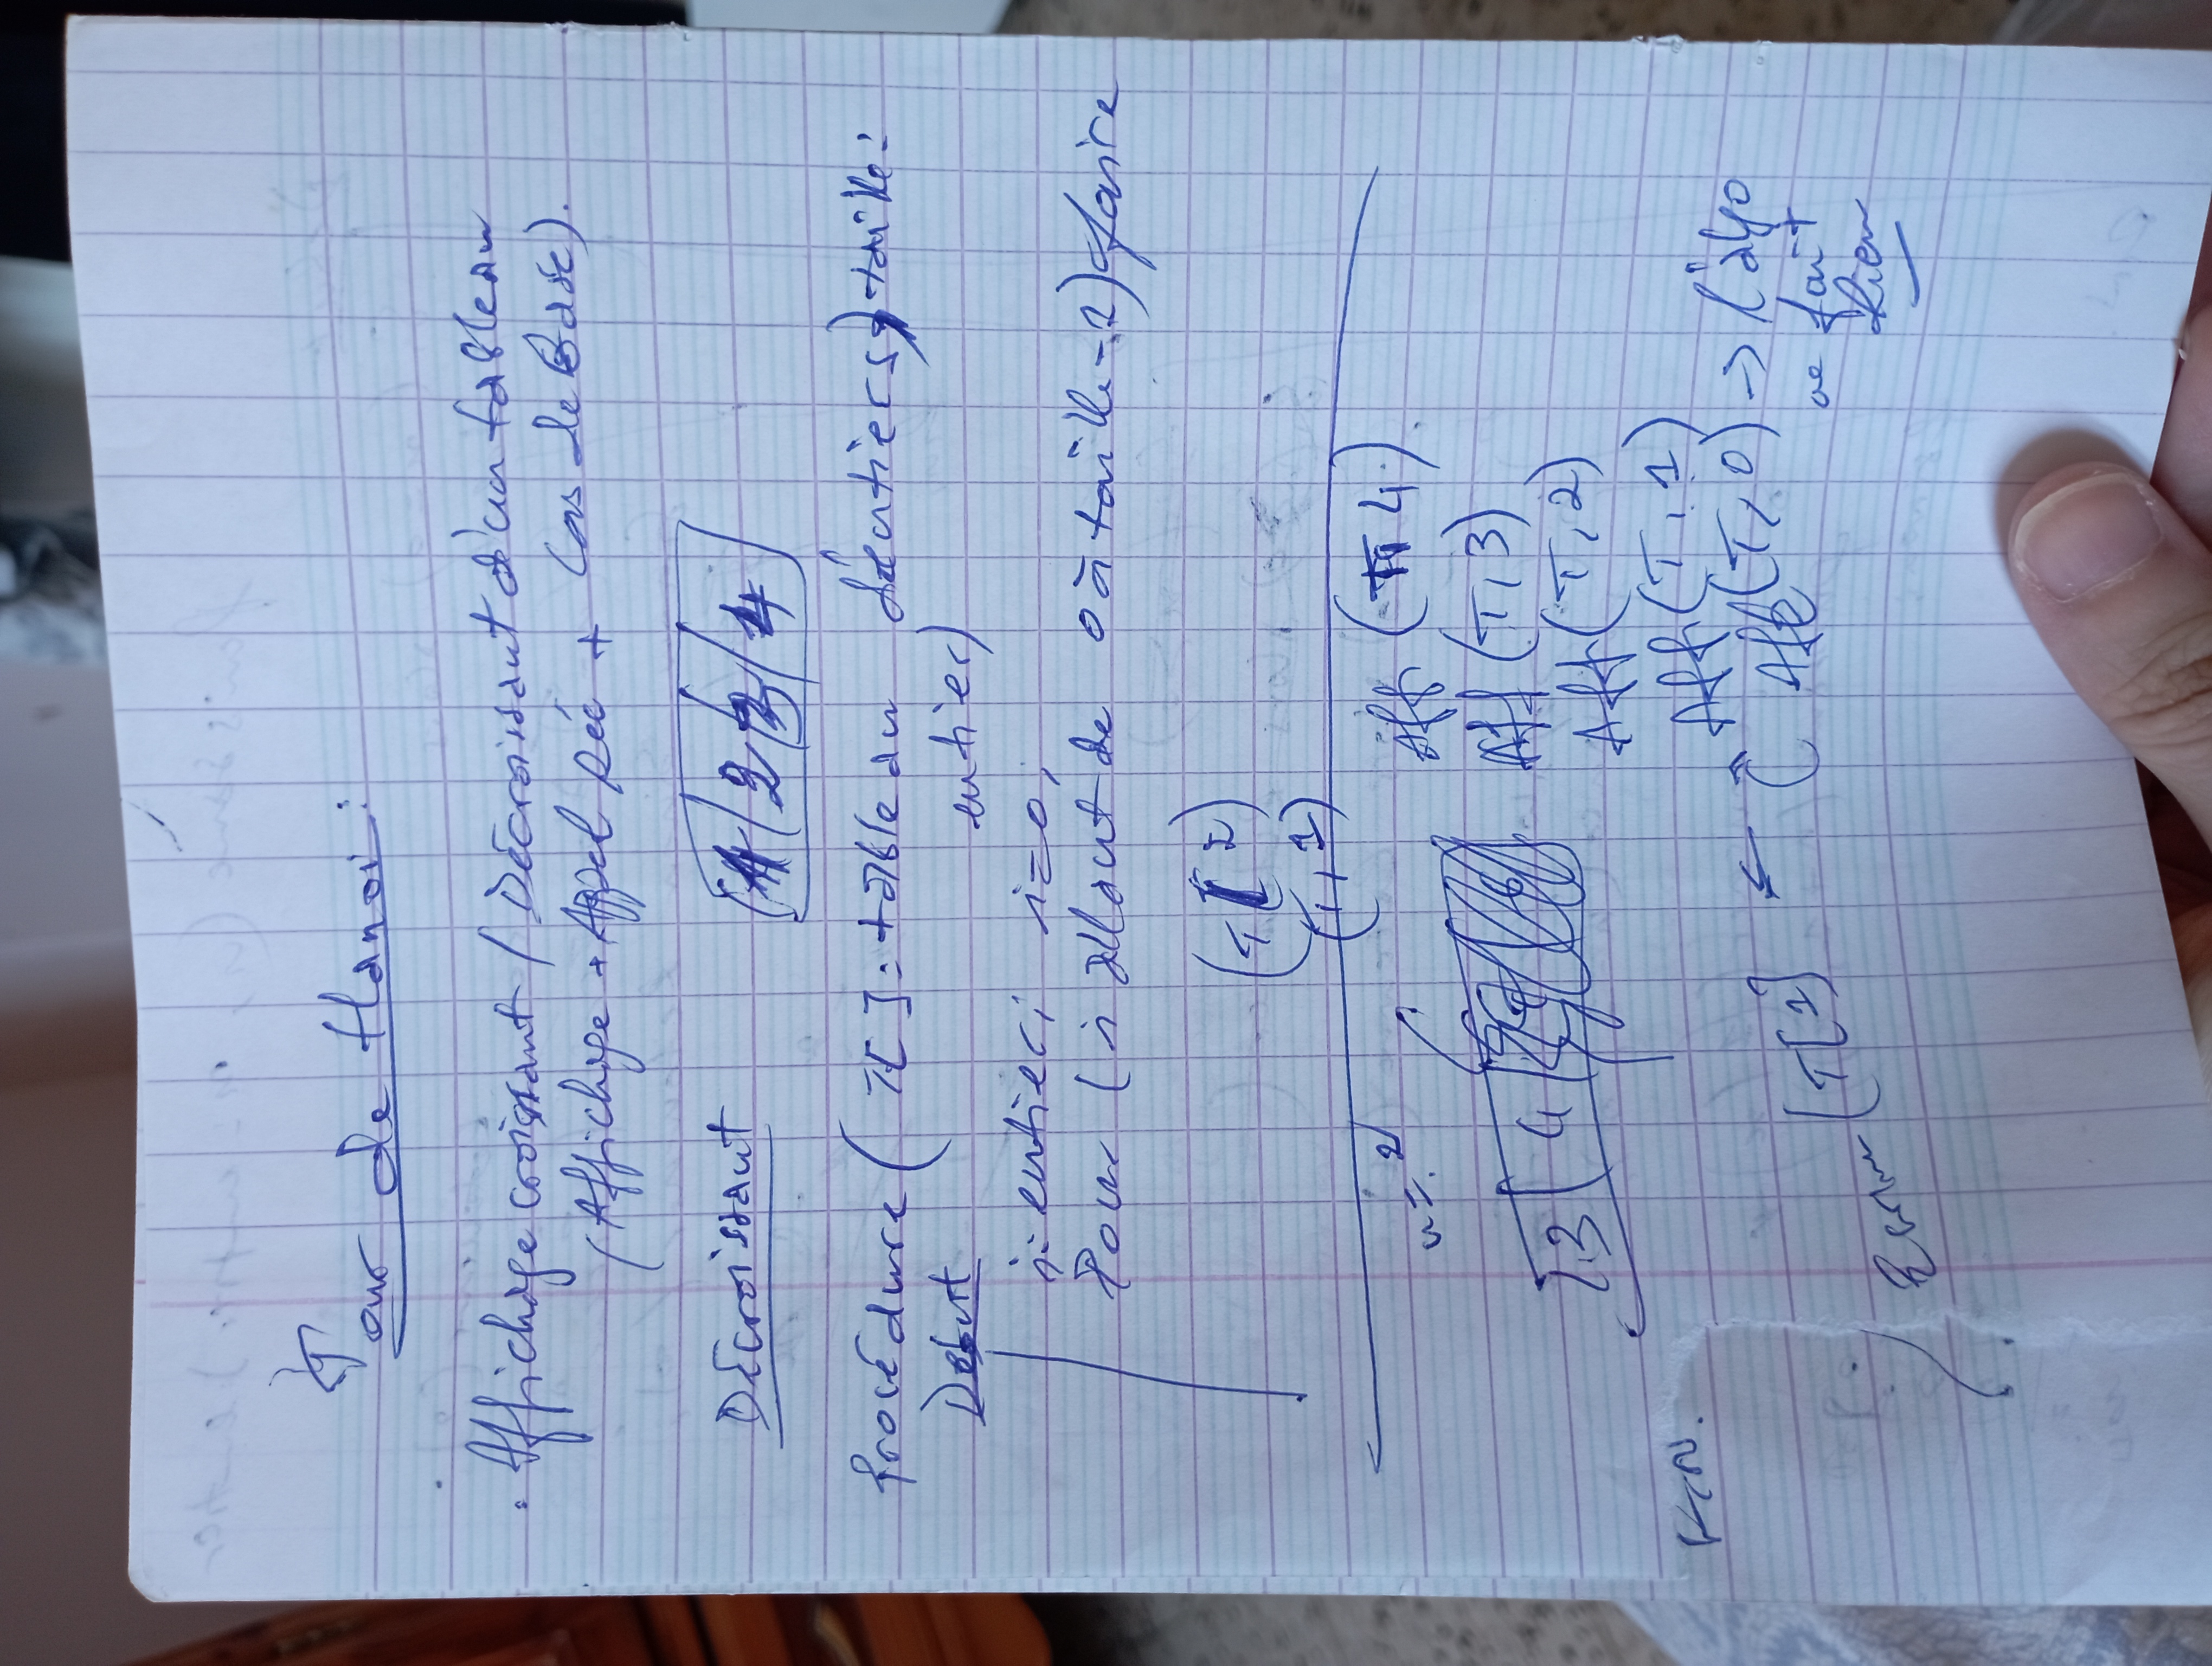 Tour de Hanoi:
. Affichage croissant / Décroissant d'un tableau
(Affichage + Appel Réc + Cas de Base).
Décroissant
1 2 3 4
Procédure ( T[ ] : tableau d'entiers, taille :
entier)
Début
i: entier; i=0;
Pour (i allant de 0 à taille-1) faire
(T[ 2)
(T, 1)
n = 2
Aff (T, 4).
Aff (T, 3)
3 4
Aff (T, 2)
Aff (T, 1)
Aff (T, 0) → l'algo
ne fait
Rien
(T[1]